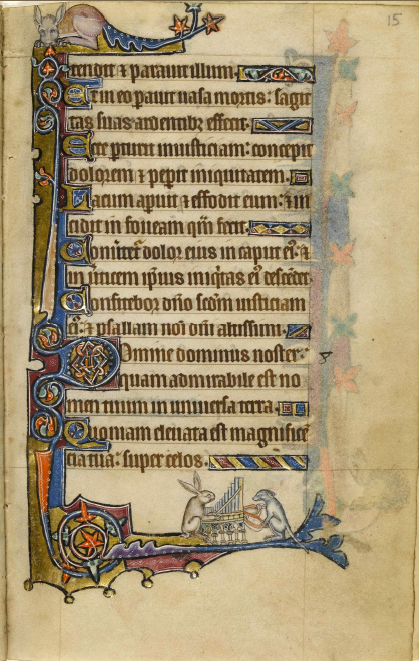 15
tendit ⁊ parauit illum.
Et in eo p̄auit uasa mortis: sagit
tas suas ardentibꝫ effecit.
Ecce pturit iniusticiam: concepit
dolorem ⁊ pepit iniquitatem.
Lacum apuit ⁊ effodit eum: ⁊ in
cidit in foueam qm̄ fecit.
Conu͛tet᷑ dolor eius in caput eiꝰ: ⁊
in u͛ticem ip̄ius iniq̇tas eiꝰ descēdet
Confitebor dn̄o scd̄m iusticiam
eiꝰ: ⁊ psallam noī dn̄i altissimi.
Domine dominus noster:
quam admirabile est no
men tuum in uniuersa terra.
Quoniam eleuata est magnifice
cia tua: super celos.